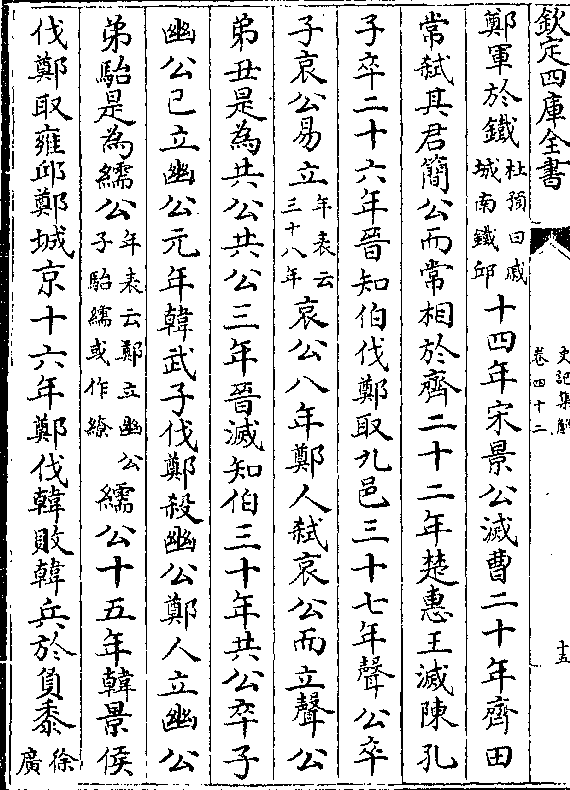 欽定四庫全書
史記集解
卷四十二
十五
鄭軍於鐵杜預曰戚城南鐵邱十四年宋景公滅曹二十年齊田
常弑其君簡公而常相於齊二十二年楚惠王滅陳孔
子卒二十六年晉知伯伐鄭取九邑三十七年聲公卒
子哀公易立年表云三十八年哀公八年鄭人弑哀公而立聲公
弟丑是為共公共公三年晉滅知伯三十年共公卒子
幽公已立幽公元年韓武子伐鄭殺幽公鄭人立幽公
弟駘是為繻公年表云鄭立幽公子駘繻或作繚繻公十五年韓景侯
伐鄭取雍邱鄭城京十六年鄭伐韓敗韓兵於負黍徐廣